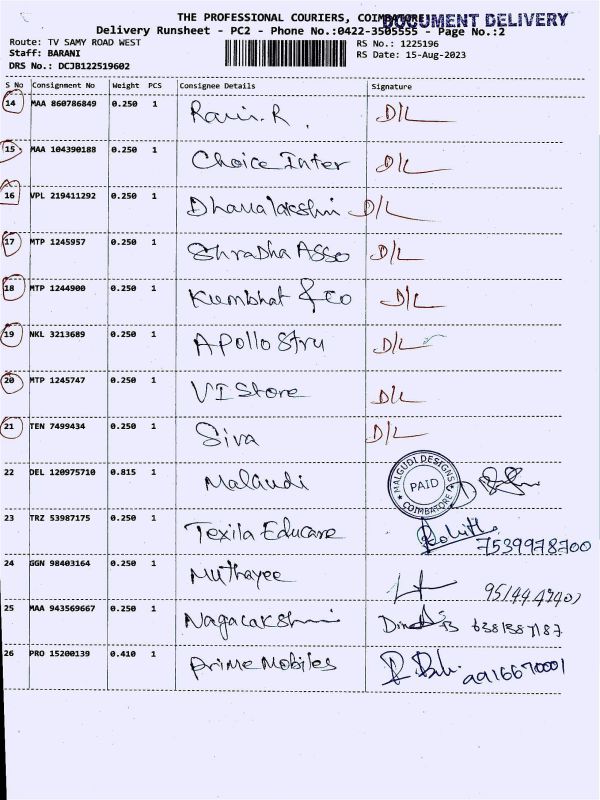 THE PROFESSIONAL COURIERS, COIMBATORE
DOCUMENT DELIVERY
Delivery Runsheet - PC2 - Phone No.:0422-3505555 - Page No.:2
Route: TV SAMY ROAD WEST
RS No.: 1225196
Staff: BARANI
RS Date: 15-Aug-2023
DRS No.: DCJB122519602
S No Consignment No Weight PCS Consignee Details Signature
14 MAA 860786849 0.250 1 Ravi.R. D/L
15 MAA 104390188 0.250 1 Choice Inter D/L
16 VPL 219411292 0.250 1 Dhanalakshmi D/L
17 MTP 1245957 0.250 1 Shradha Asso D/L
18 MTP 1244900 0.250 1 Kumbhat & Co D/L
19 NKL 3213689 0.250 1 Apollo Stru D/L
20 MTP 1245747 0.250 1 VI Store D/L
21 TEN 7499434 0.250 1 Siva D/L
22 DEL 120975710 0.815 1 Malaudi MALGUDI DESIGNS PAID COIMBATORE
23 TRZ 53987175 0.250 1 Texila Educare 7539978700
24 GGN 98403164 0.250 1 Muthayee
25 MAA 943569667 0.250 1 Nagalakshmi
26 PRO 15200139 0.410 1 Prime Mobiles